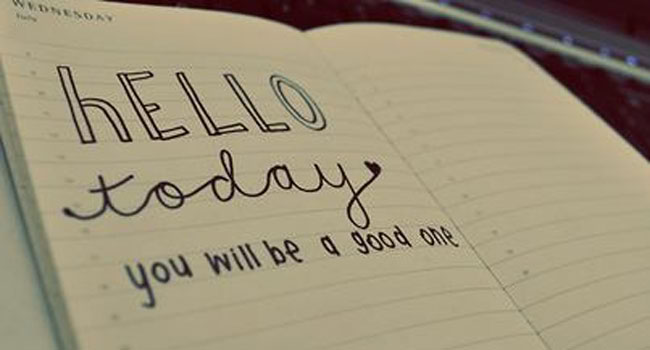 WEDNESDAY
July
hELLO
today
you will be a good one